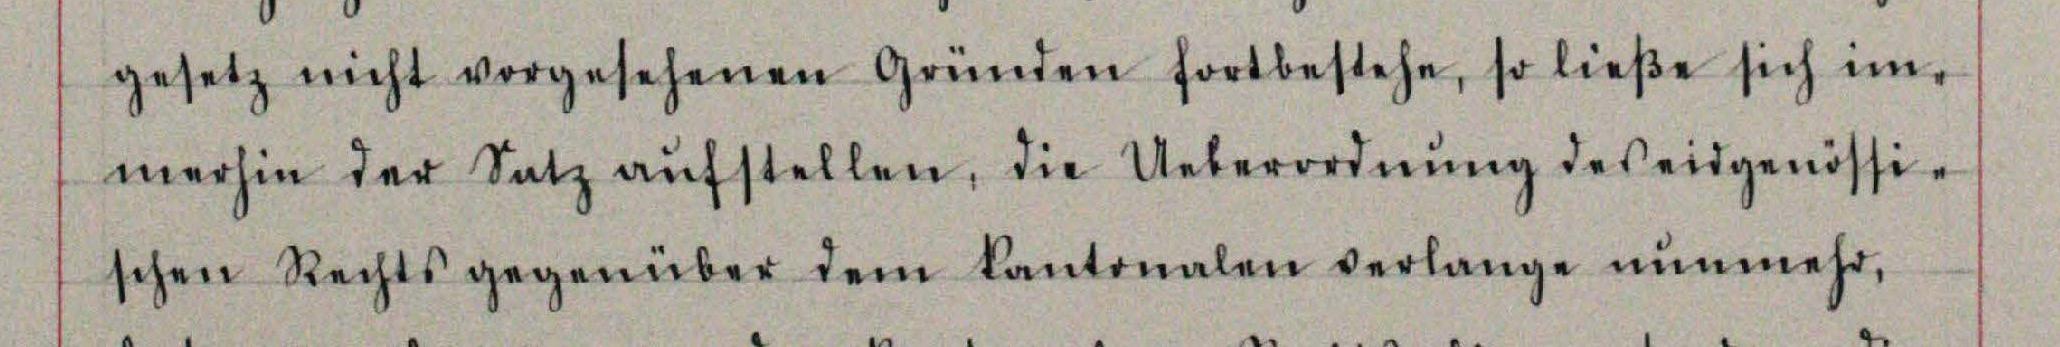 gesetz nicht vorgesehenen Gründen fortbestehe, so ließe sich im-
merhin der Satz aufstellen, die Ueberordnung des eidgenössi-
schen Rechts gegenüber dem kantonalen verlange nunmehr,